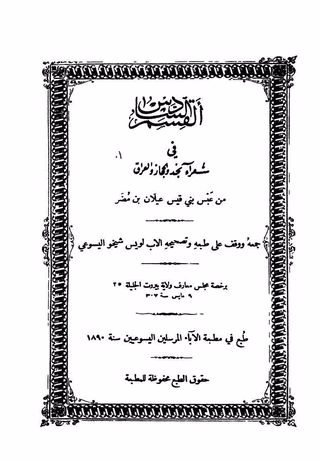 القسم السادس
في
شعراء نجد والحجاز والعراق
من عبس بني قيس عيلان بن مضر
جمعه ووقف على طبعه وتصحيحه الاب لويس شيخو اليسوعي
برخصة مجلس معارف ولاية بيروت الجليلة ٢٥
٩ مايس سنة ٣٠٧
طُبع في مطبعة الآباء المرسلين اليسوعيين سنة ١٨٩٠
حقوق الطبع محفوظة للمطبعة